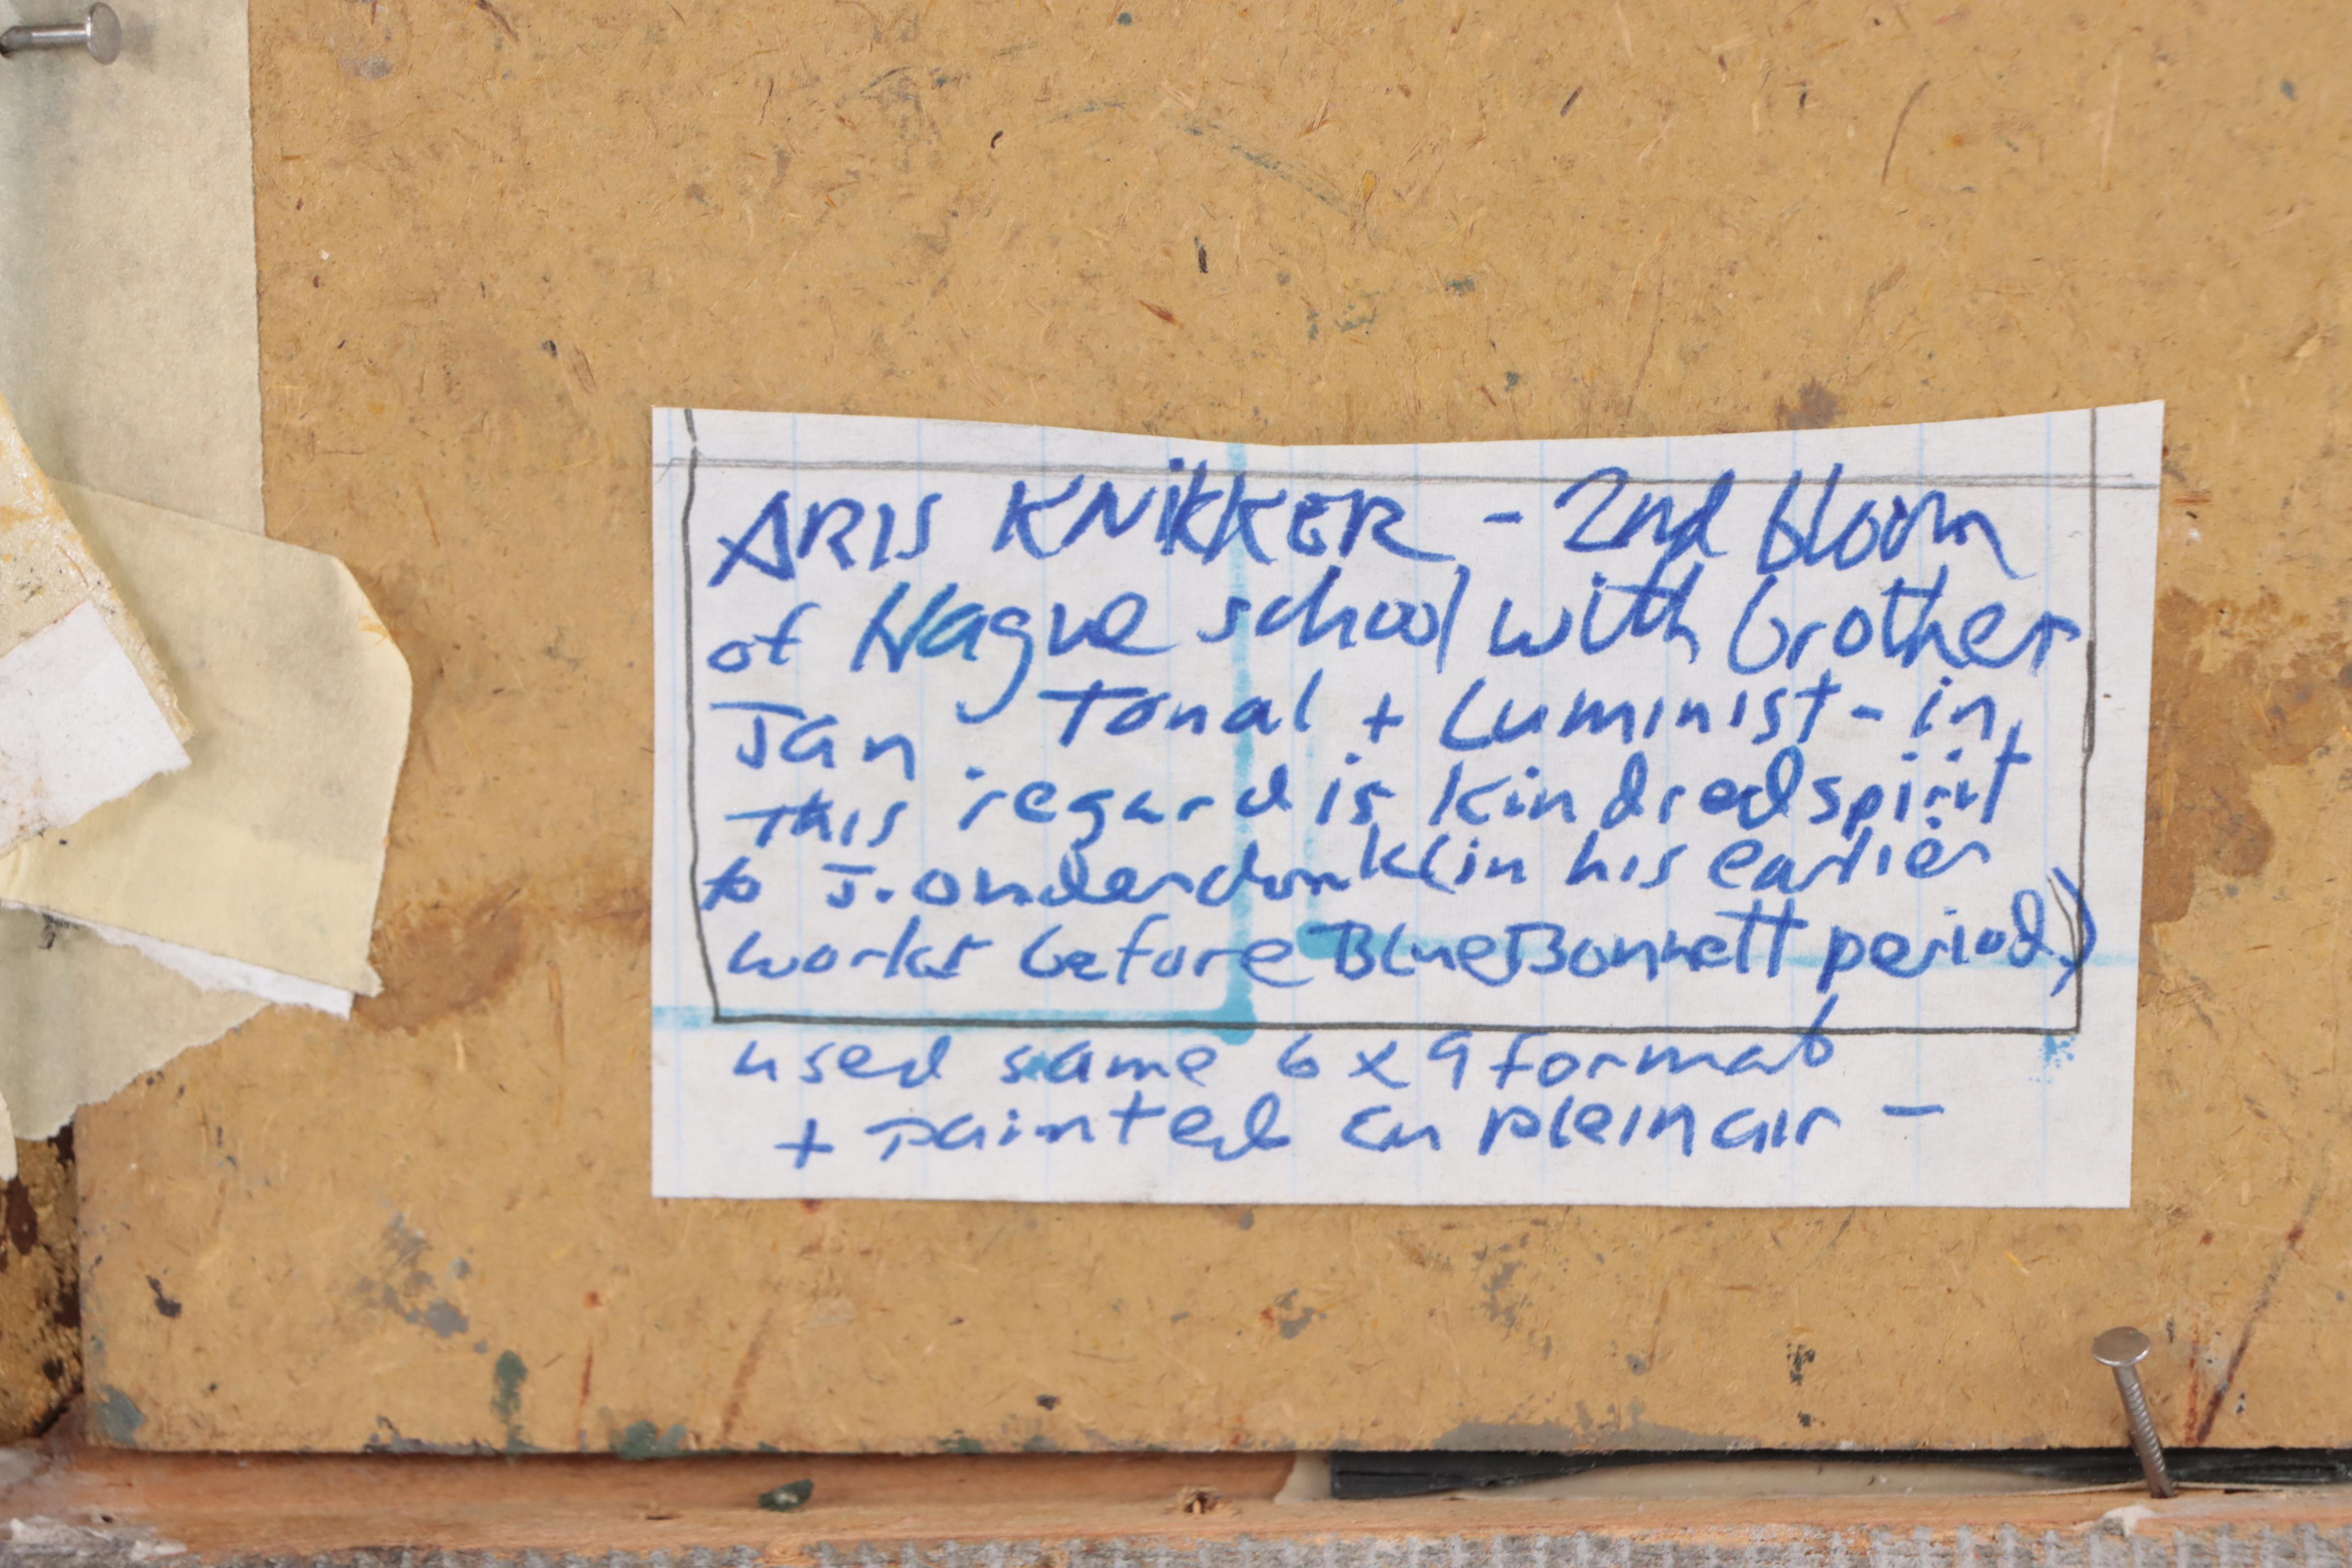 ARIS KNIKKER - 2nd bloom
of Hague school with brother
Jan Tonal + Luminist - in
this regard is kindred spirit
to J. Onderdonk (in his earlier
works before BlueBonnett period)
used same 6 x 9 format
+ painted en plein air -